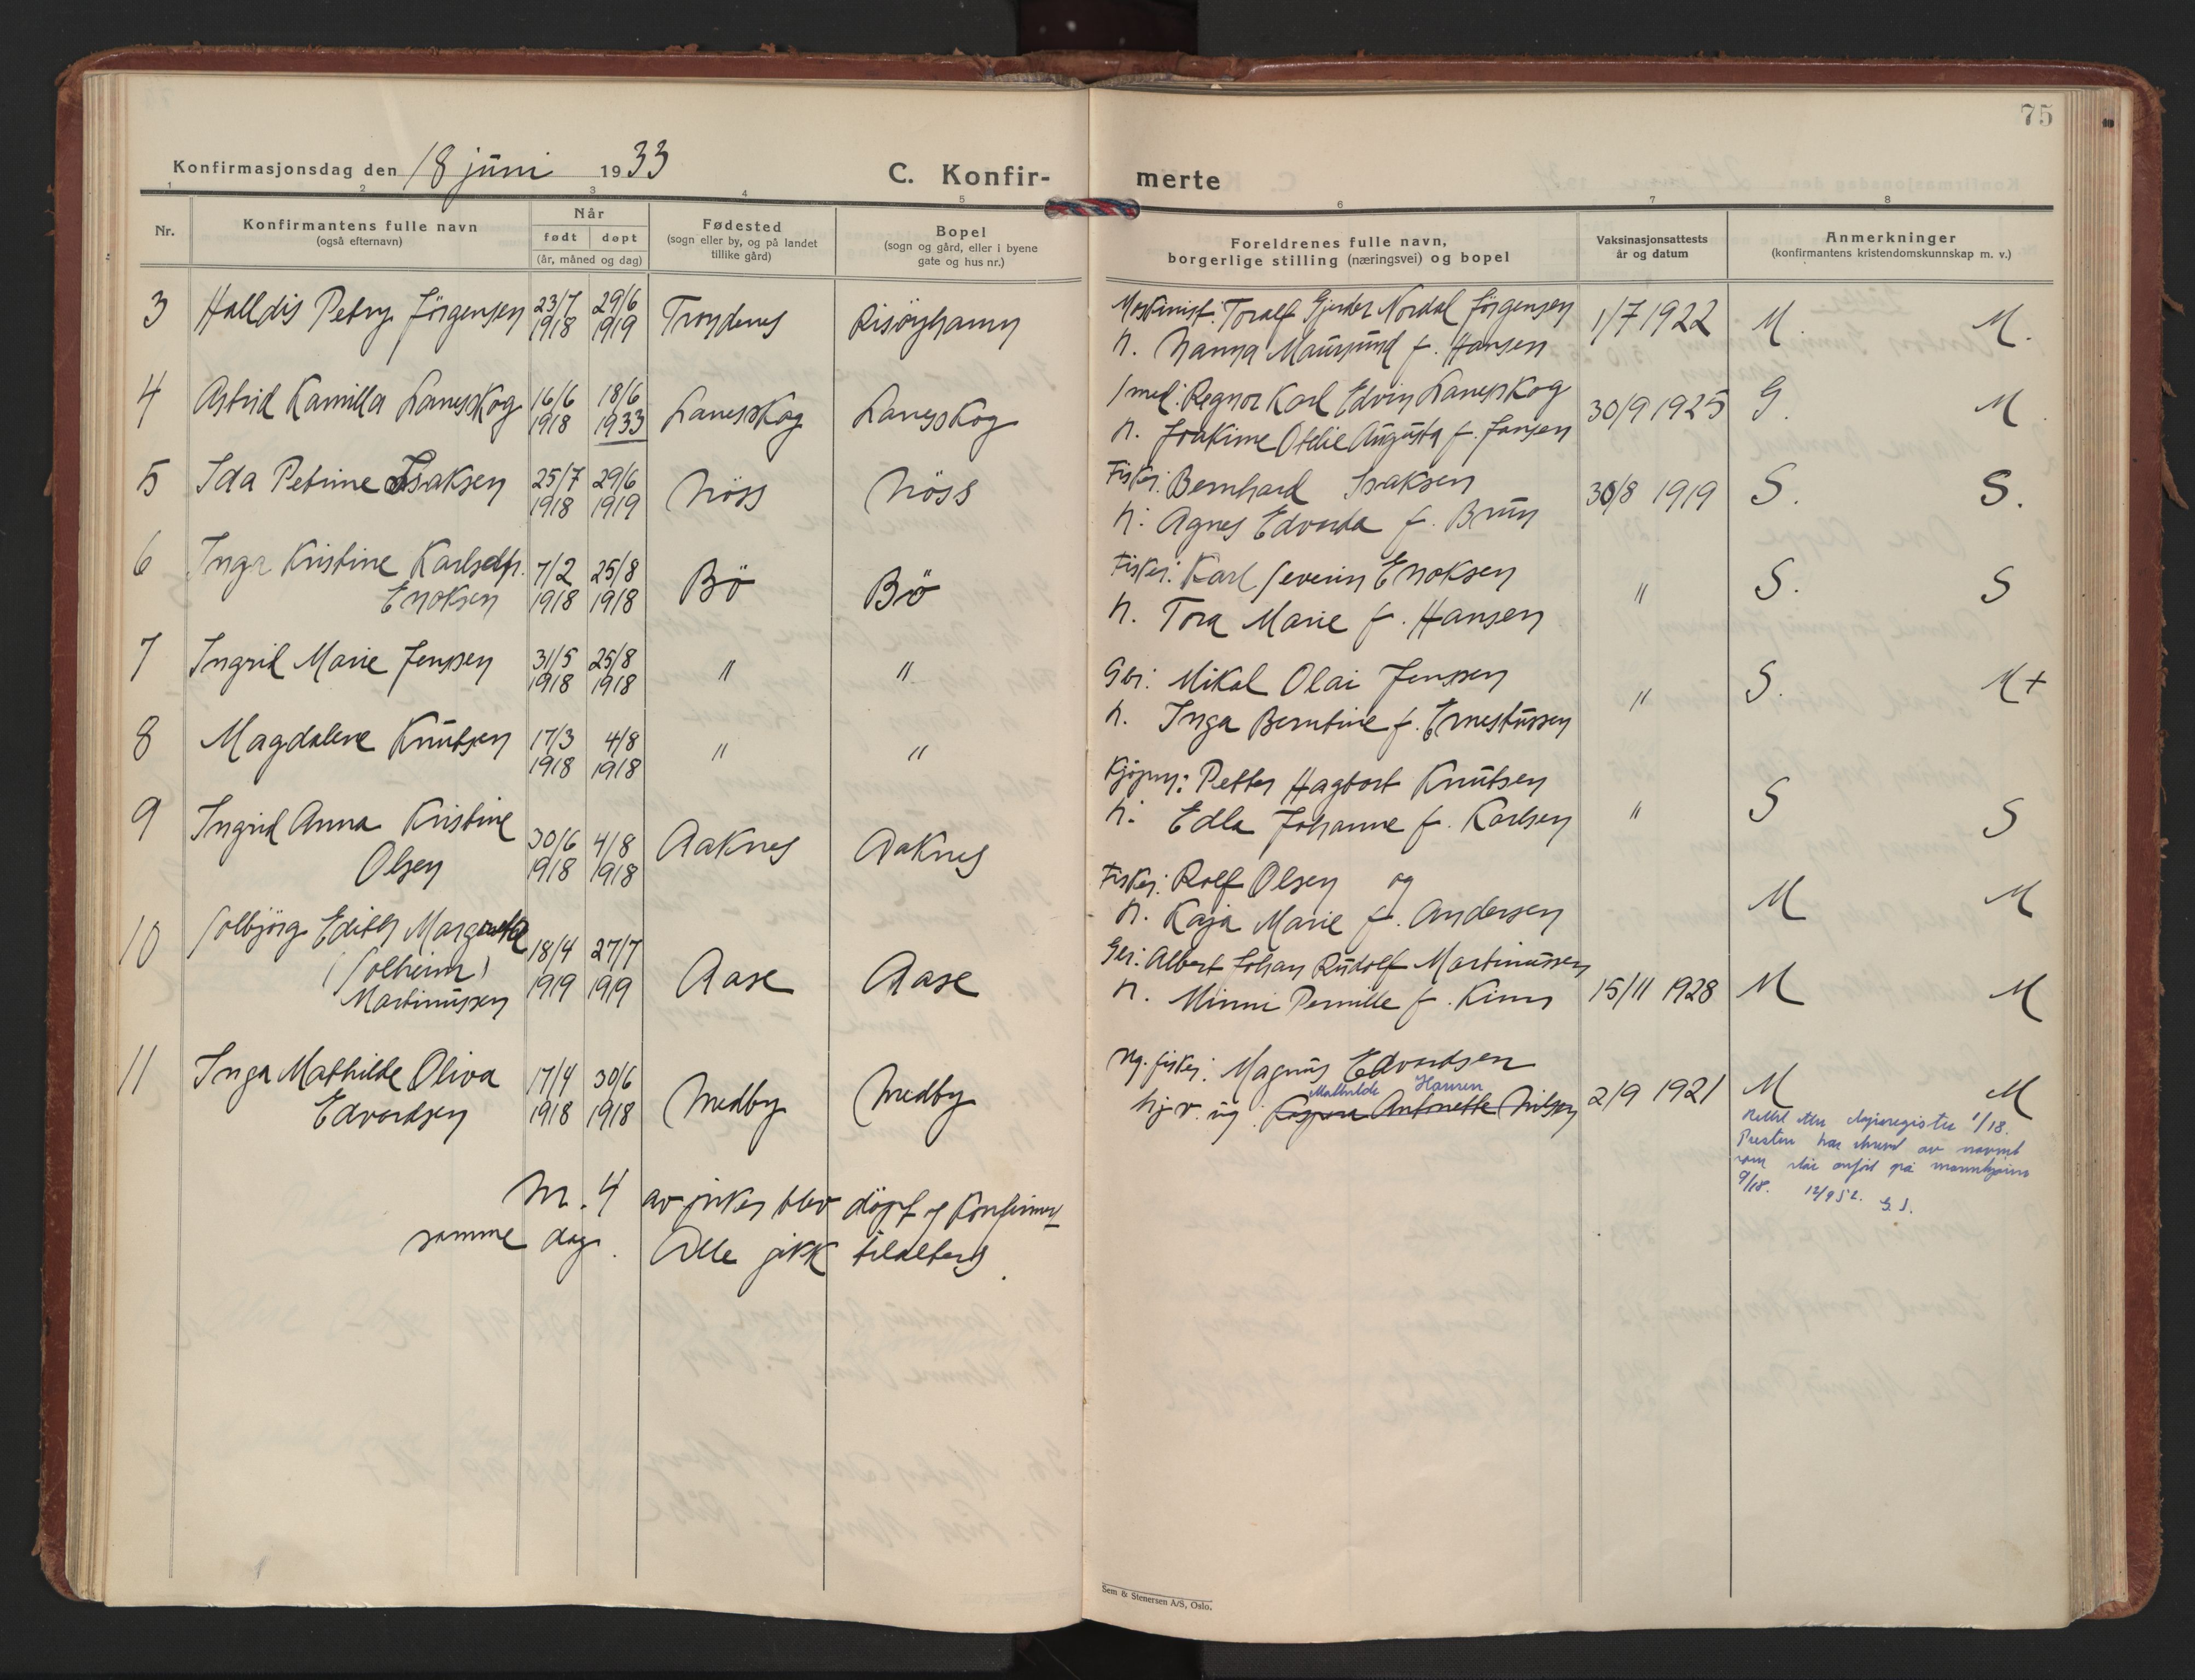 75
Konfirmasjonsdag den 18 juni 1933
C. Konfir-
merte
1 2 3 4 5 6 7 8
Nr.
Konfirmantens fulle navn
(også efternavn)
Når
født døpt
(år, måned og dag)
Fødested
(sogn eller by, og på landet
tillike gård)
Bopel
(sogn og gård, eller i byene
gate og hus nr.)
Foreldrenes fulle navn,
borgerlige stilling (næringsvei) og bopel
Vaksinasjonsattests
år og datum
Anmerkninger
(konfirmantens kristendomskunnskap m. v.)
3 Halldis Petry Jörgensen 23/7 29/6 Risöyhamn Maskinist: Toralf Gjerder Nordal Jörgensen 1/7 1922 M. M.
1918 1919 h. Nanna f. Hansen
4 Astrid Kamilla Lanesskog 16/6 18/6 Lanesskog Lanesskog Smed: Regnor Karl Edvin Lanesskog 30/9 1925 G. M.
1918 1933 h. Joakime Otelie Augusta f. Jansen
5 Ida Petrine Isaksen 25/7 29/6 Nöss Nöss Fisker: Bernhard Isaksen 30/8 1919 S. S.
1918 1919 h: Agnes Edvarda f. Brun
6 Inga Kristine Karlsdtr. 7/2 25/8 Bö Bö Fisker: Karl Severin Enoksen " S. S
Enoksen 1918 1918 h. Tora Marie f. Hansen
7 Ingrid Marie Jenssen 31/5 25/8 " " Gbr: Mikal Olai Jenssen " S. M+
1918 1918 h. Inga Berntine f. Ernestussen
8 Magdalene Knutsen 17/3 4/8 " " Kjöpm: Petter Hagbart Knutsen " S S
1918 1918 h. Edla Johanne f. Karlsen
9 Ingrid Anna Kristine 30/6 4/8 Aaknes Aaknes Fisker: Rolf Olsen og M M
Olsen 1918 1918 h. Kaja Marie f. Andersen
10 Solbjörg Edith Margrethe 18/4 27/7 Aase Aase Gbr: Albert Johan Rudolf Martinussen 15/11 1928 M M
(Solheim) 1919 1919 h. Minni Pernille f. Kinn
Martinussen
11 Inga Mathilde Oliva 17/4 30/6 Medby Medby Ug. fisker: Magnus Edvardsen 2/9 1921 M M
Edvardsen 1918 1918 Mathilde Hansen
hj. v. ug: Antonette Nilsen
Rettet etter dåpsregister 1/18.
Presten har skrevet av navnet
som står anfört på mannkjønn
9/18. 12/9 52. G. S.
Nr. 4 av piker blev döpt og konfirmert
samme dag. Alle gikk tilalters.
Sem & Stenersen A/S, Oslo.